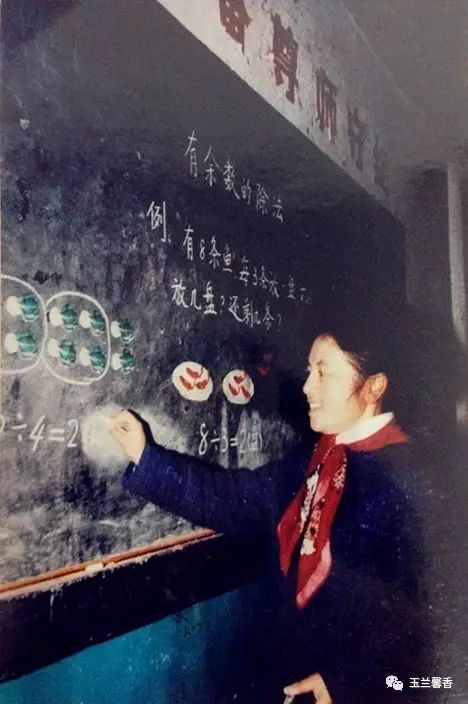 尊师守
有余数的除法
例、有8条鱼,每3条放一盘
放几盘?还剩几条?
÷4=2
8÷3=2(盘)
玉兰馨香